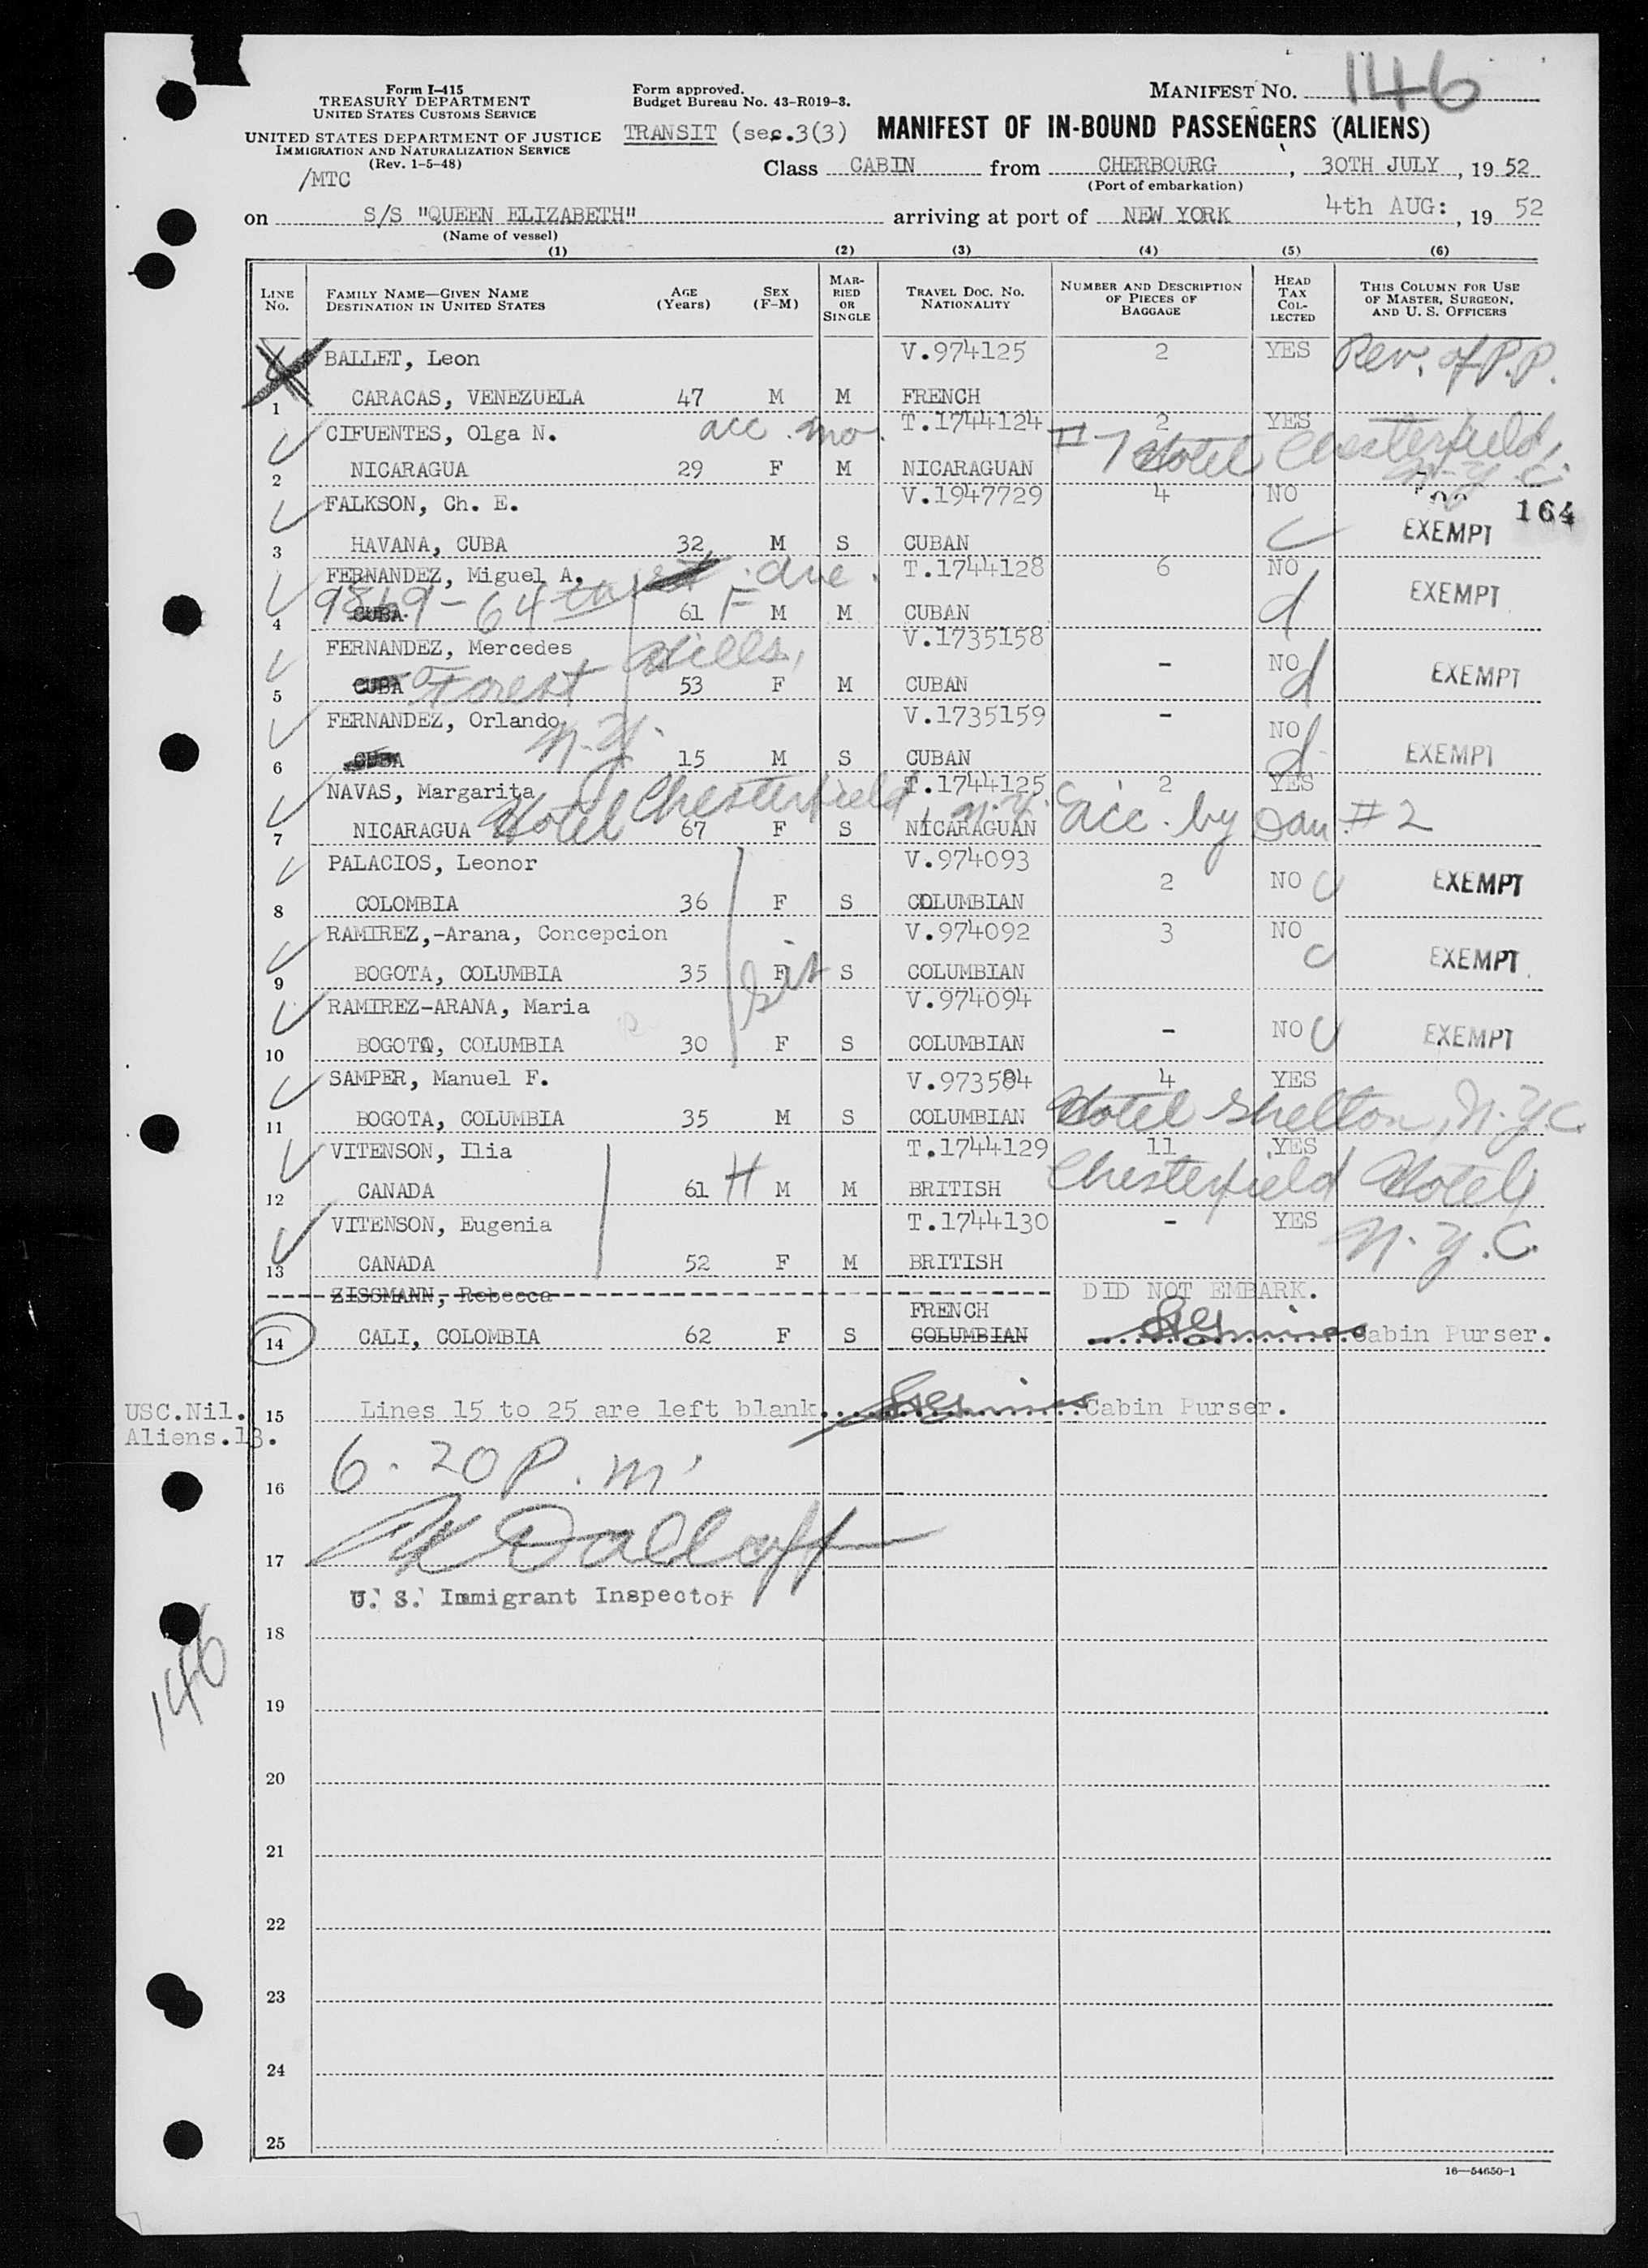 Form I-415
TREASURY DEPARTMENT
UNITED STATES CUSTOMS SERVICE
UNITED STATES DEPARTMENT OF JUSTICE
IMMIGRATION AND NATURALIZATION SERVICE
(Rev. 1-5-48)
/MTC
Form approved.
Budget Bureau No. 43-R019-3.
MANIFEST NO. 146
TRANSIT (sec.3(3) MANIFEST OF IN-BOUND PASSENGERS (ALIENS)
Class CABIN from CHERBOURG, 30TH JULY, 19 52
(Port of embarkation)
on S/S "QUEEN ELIZABETH" arriving at port of NEW YORK 4th AUG:, 19 52
(Name of vessel)
(1) (2) (3) (4) (5) (6)
LINE NO. FAMILY NAME—GIVEN NAME DESTINATION IN UNITED STATES AGE (Years) SEX (F-M) MARRIED OR SINGLE TRAVEL DOC. NO. NATIONALITY NUMBER AND DESCRIPTION OF PIECES OF BAGGAGE HEAD TAX COLLECTED THIS COLUMN FOR USE OF MASTER, SURGEON, AND U. S. OFFICERS
BALLET, Leon V.974125 2 YES Rev. of P.P.
1 CARACAS, VENEZUELA 47 M M FRENCH
CIFUENTES, Olga N. acc. mo. T.1744124 2 YES
#7 Hotel Chesterfield, N.Y.C.
2 NICARAGUA 29 F M NICARAGUAN
FALKSON, Ch. E. V.1947729 4 NO 164
EXEMPT
3 HAVANA, CUBA 32 M S CUBAN
FERNANDEZ, Miguel A. T.1744128 6 NO EXEMPT
9869-64th ave.
4 CUBA 61 M M CUBAN
FERNANDEZ, Mercedes V.1735158 - NO EXEMPT
Forest Hills,
5 CUBA 53 F M CUBAN
FERNANDEZ, Orlando V.1735159 - NO EXEMPT
N.Y.
6 CUBA 15 M S CUBAN
NAVAS, Margarita T.1744125 2 YES
Hotel Chesterfield, N.Y.C. acc. by dau #2
7 NICARAGUA 67 F S NICARAGUAN
PALACIOS, Leonor V.974093 2 NO EXEMPT
8 COLOMBIA 36 F S COLUMBIAN
RAMIREZ,-Arana, Concepcion V.974092 3 NO EXEMPT
9 BOGOTA, COLUMBIA 35 F S COLUMBIAN
sis
RAMIREZ-ARANA, Maria V.974094 - NO EXEMPT
10 BOGOTA, COLUMBIA 30 F S COLUMBIAN
SAMPER, Manuel F. V.973584 4 YES
11 BOGOTA, COLUMBIA 35 M S COLUMBIAN Hotel Shelton, N.Y.C.
VITENSON, Ilia T.1744129 11 YES
12 CANADA 61 H M M BRITISH Chesterfield Hotel
VITENSON, Eugenia T.1744130 - YES N.Y.C.
13 CANADA 52 F M BRITISH
ZISSMANN, Rebecca DID NOT EMBARK.
FRENCH
14 CALI, COLOMBIA 62 F S COLUMBIAN Cabin Purser.
USC.Nil.
15 Lines 15 to 25 are left blank Cabin Purser.
Aliens.13.
6.20 P.m.
16
17
U. S. Immigrant Inspector
18
146
19
20
21
22
23
24
25
16—54650-1